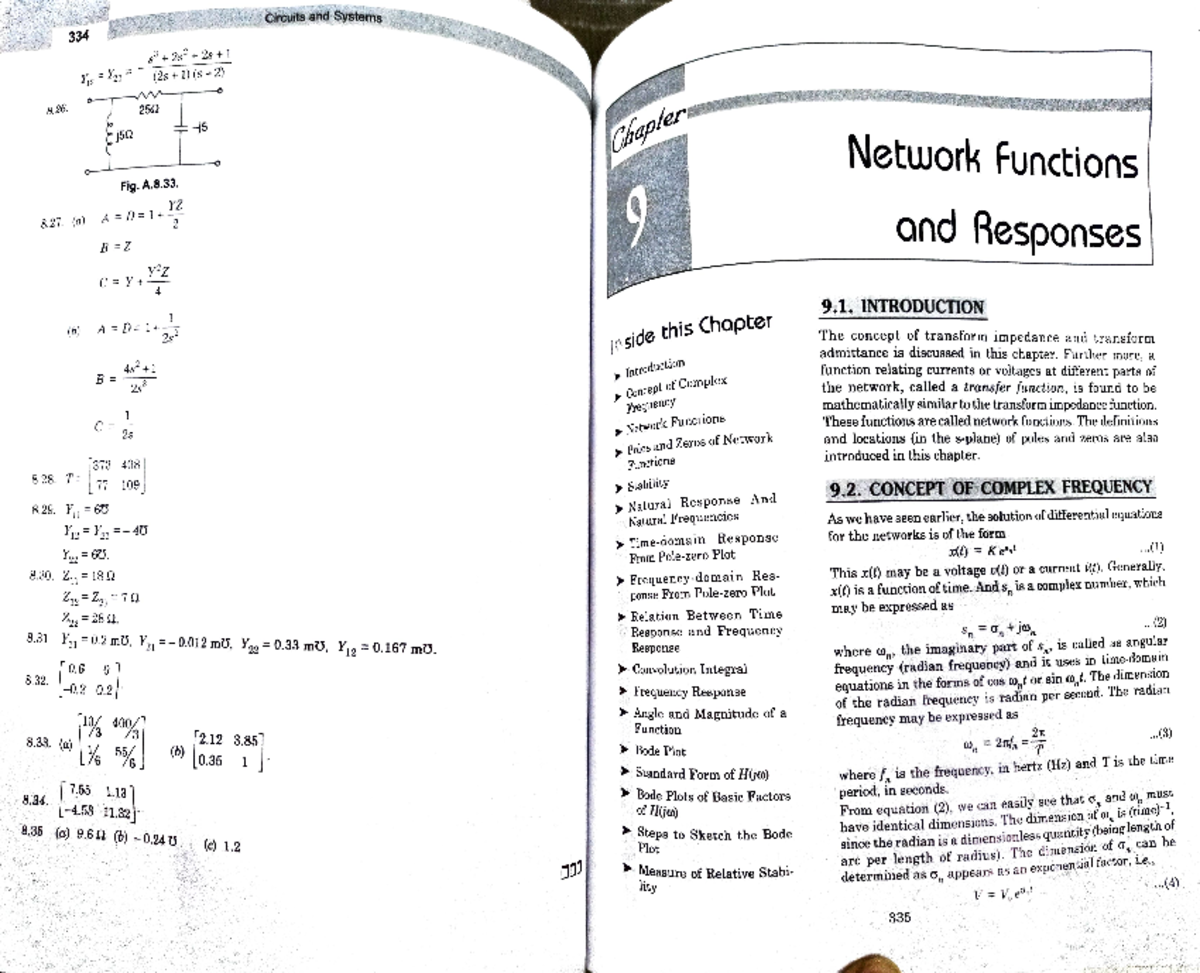 334
Circuits and Systems
Y₁₂ = Y₂₁ = - (s³ + 2s² - 2s + 1) / ((2s + 1)(s - 2))
8.26.
25Ω
j5Ω
-j5
Fig. A.8.33.
8.27. (a) A = D = 1 + YZ/2
B = Z
C = Y + Y²Z/4
(b) A = D = 1 + 1/2s²
B = (4s² + 1)/2s³
C = 1/2s
8.28. T = [373 438
77 109]
8.29. Y₁₁ = 6℧
Y₁₂ = Y₂₁ = - 4℧
Y₂₂ = 6℧.
8.30. Z₁₁ = 18 Ω
Z₁₂ = Z₂₁ = 7 Ω
Z₂₂ = 28 Ω.
8.31 Y₁₁ = 0.2 m℧, Y₂₁ = - 0.012 m℧, Y₂₂ = 0.33 m℧, Y₁₂ = 0.167 m℧.
8.32. [0.6
-0.2 0.2].
8.33. (a) [13/3 400/3
1/6 55/6] (b) [2.12 3.85
0.36 1].
8.34. [7.55 1.13
-4.53 11.32].
8.35 (a) 9.6 Ω (b) - 0.24 ℧ (c) 1.2
Chapter
9
Network Functions
and Responses
Inside this Chapter
➤ Introduction
➤ Concept of Complex
Frequency
➤ Network Functions
➤ Poles and Zeros of Network
Functions
➤ Stability
➤ Natural Response And
Natural Frequencies
➤ Time-domain Response
From Pole-zero Plot
➤ Frequency-domain Res-
ponse From Pole-zero Plot
➤ Relation Between Time
Response and Frequency
Response
➤ Convolution Integral
➤ Frequency Response
➤ Angle and Magnitude of a
Function
➤ Bode Plot
➤ Standard Form of H(jω)
➤ Bode Plots of Basic Factors
of H(jω)
➤ Steps to Sketch the Bode
Plot
➤ Measure of Relative Stabi-
lity
9.1. INTRODUCTION
The concept of transform impedance and transform
admittance is discussed in this chapter. Further more, a
function relating currents or voltages at different parts of
the network, called a transfer function, is found to be
mathematically similar to the transform impedance function.
These functions are called network functions. The definitions
and locations (in the s-plane) of poles and zeros are also
introduced in this chapter.
9.2. CONCEPT OF COMPLEX FREQUENCY
As we have seen earlier, the solution of differential equations
for the networks is of the form
x(t) = K e^(sₙt) ...(1)
This x(t) may be a voltage v(t) or a current i(t). Generally,
x(t) is a function of time. And sₙ is a complex number, which
may be expressed as
sₙ = σₙ + jωₙ ...(2)
where ωₙ, the imaginary part of sₙ, is called as angular
frequency (radian frequency) and it uses in time-domain
equations in the forms of cos ωₙt or sin ωₙt. The dimension
of the radian frequency is radian per second. The radian
frequency may be expressed as
ωₙ = 2πfₙ = 2π/T ...(3)
where fₙ is the frequency, in hertz (Hz) and T is the time
period, in seconds.
From equation (2), we can easily see that σₙ and ωₙ must
have identical dimensions. The dimension of ωₙ is (time)⁻¹,
since the radian is a dimensionless quantity (being length of
arc per length of radius). The dimension of σₙ can be
determined as σₙ appears as an exponential factor, i.e.,
V = V₀ e^(σₙt) ...(4)
335